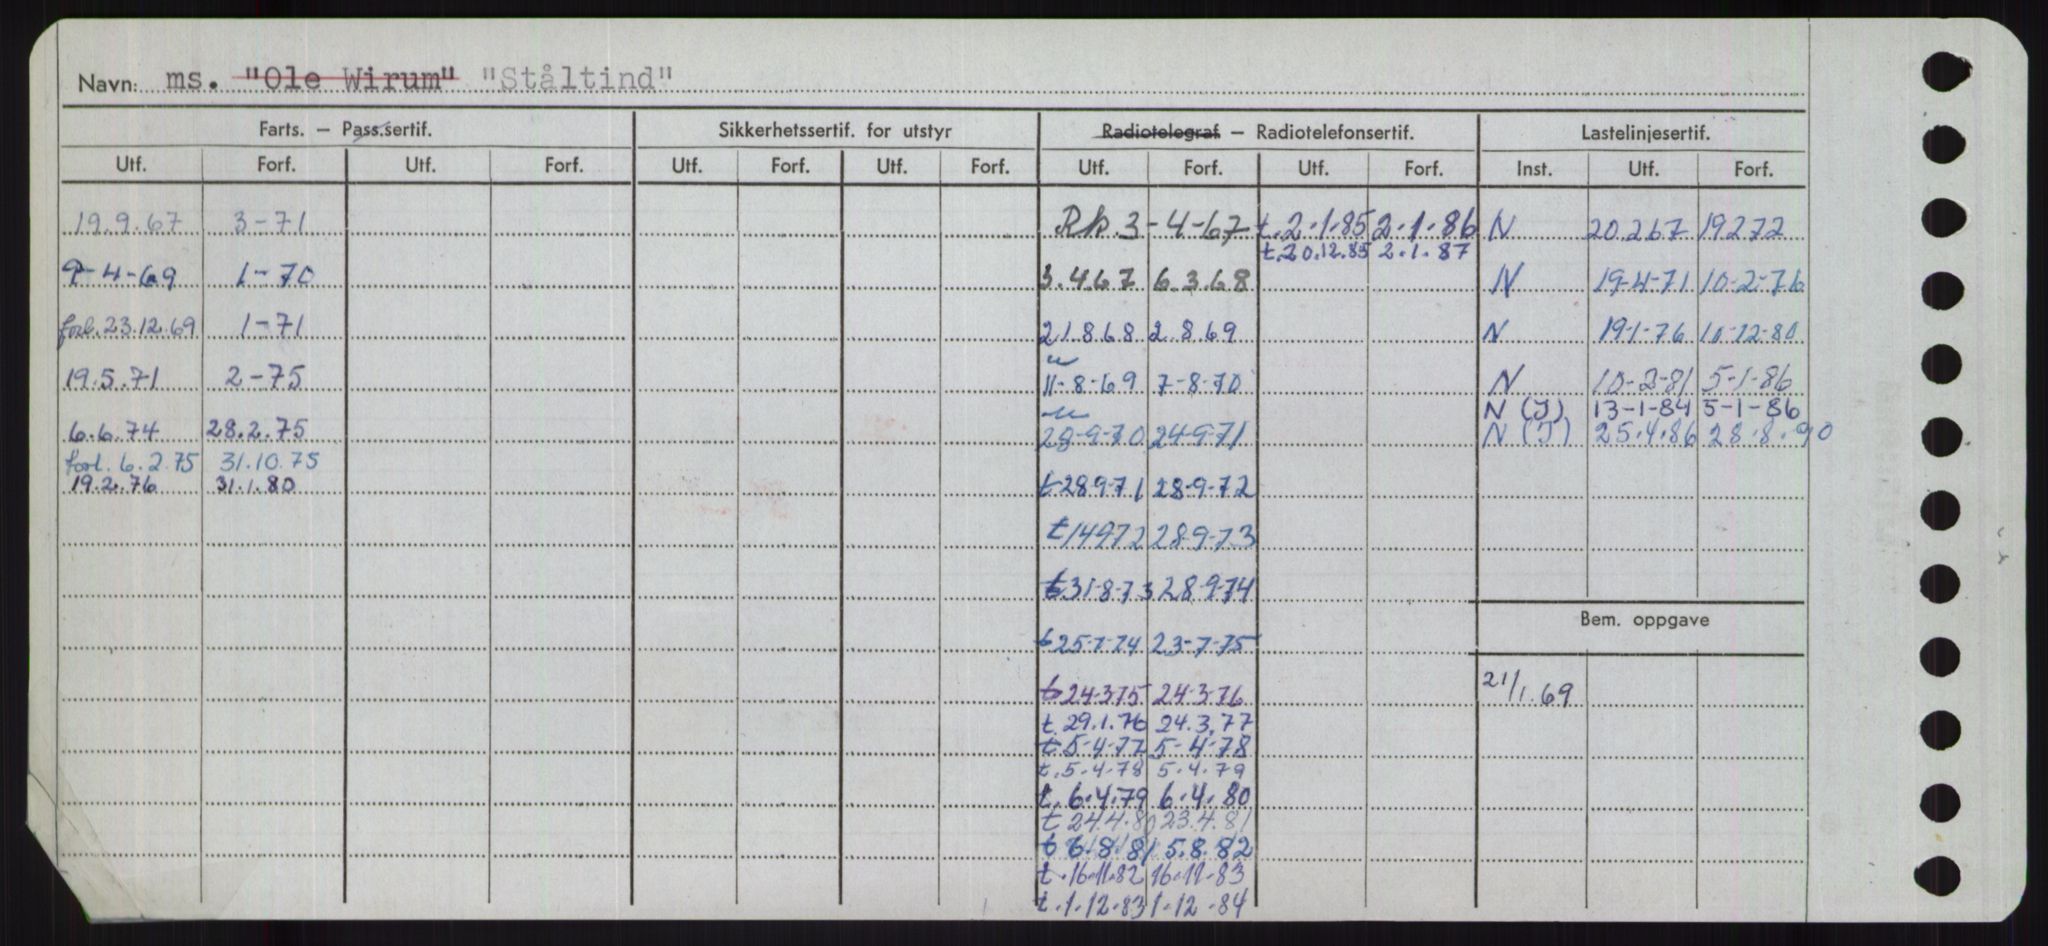 Navn: ms. "Ole Wirum" "Ståltind"
Farts. — Pass.sertif. Sikkerhetssertif. for utstyr Radiotelegraf — Radiotelefonsertif. Lastelinjesertif.
Utf. Forf. Utf. Forf. Utf. Forf. Utf. Forf. Utf. Forf. Utf. Forf. Inst. Utf. Forf.
19.9.67 3-71 Rp. 3-4-67 t.2.1.85 2.1.86 N 20.2.67 19272
t.20.12.85 2.1.87
9-4-69 1-70 3.4.67 6.3.68 N 19-4-71 10-2-76
forl. 23.12.69 1-71 21.8.68 2.8.69 N 19-1-76 10-12-80
19.5.71 2-75 11-8-69 7-8-70 N 10-2-81 5-1-86
N (J) 13-1-84 5-1-86
6.6.74 28.2.75 28-9-70 24-9-71 N (J) 25.4.86 28.8.90
forl. 6.2.75 31.10.75
19.2.76 31.1.80 t 28971 28-9-72
t 14972 28-9-73
t 31-8-73 28-9-74
Bem. oppgave
t 25-7-74 23-7-75
t 24-375 24-3-76 21/1.69
t. 29.1.76 24.3.77
t 5-4-77 5-4-78
t. 5-4-78 5.4.79
t. 6.4.79 6.4.80
t 24.4.80 23.4.81
t 6.8.81 5.8.82
t. 16.11.82 16.11.83
t. 1.12.83 1.12.84